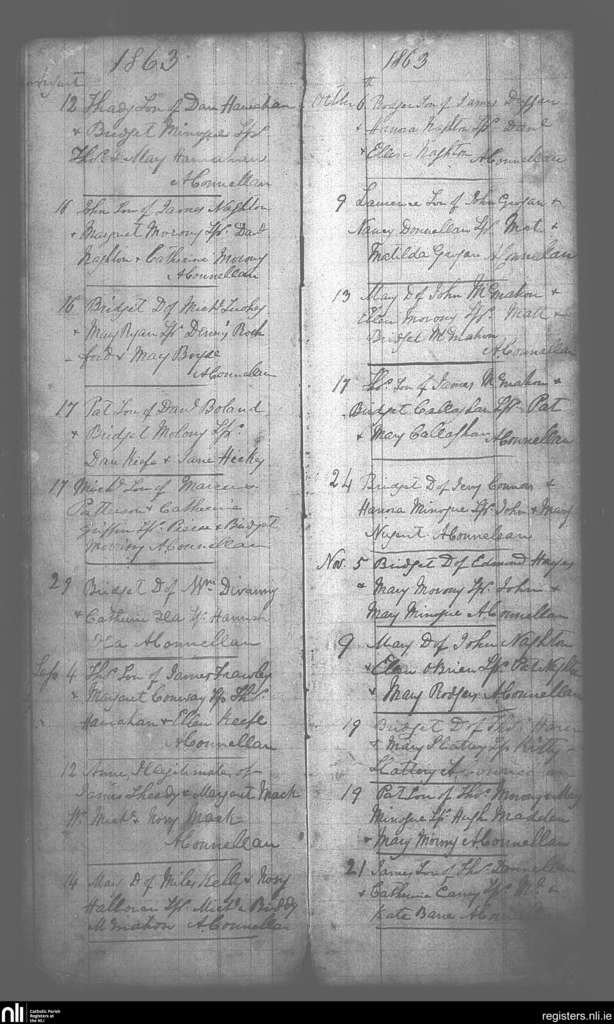 1863
August
12 Thady Son of Dan Hanrahan
& Bridget Minogue Sps
Thos & May Hanrahan
AConnellan
16 John Son of James Naghton
& Margret Morony Sps Danl
Naghton & Catherine Morony
AConnellan
16 Bridget D of Michl
& May Ryan Sps Denis Roch
ford & May Boyde
AConnellan
17 Pat Son of Danl Boland
& Bridget Molony Sps
Dan Keefe & Jane Hecky
17 Michl Son of Marcus
Patterson & Catherine
Griffin Sps Pierce & Bridget
Morony AConnellan
29 Bridget D of Wm Divanny
& Catherine Hea Sps Hannah
Hea AConnellan
Sep 4 Thos Son of James Frawley
& Margaret Conway Sps Thos
Hanrahan & Ellen Keefe
AConnellan
12 Anne Illegitimate of
James Sheedy & Margaret Mack
Michl & Nory Mack
AConnellan
14 May D of Miles Kelly & Nory
Halloran Sps Michl & Biddy
McMahon AConnellan
1863
October 6th Rodger Son of James
& Hanora Naghton Sps Danl
& Ellen Naghton AConnellan
9 Laurence Son of John &
Nancy Donnellan Sps Mat &
Matilda AConnellan
13 May D of John McMahon &
Ellen Morony Sps Matt &
Bridget McMahon
AConnellan
17 Thos Son of James McMahon &
Bridget Callaghan Sps Pat
& May Callaghan AConnellan
24 Bridget D of Jery Connors &
Hanora Minogue Sps John & Mary
Nugent AConnellan
Nov. 5 Bridget D of Edmond Hayes
& Mary Morony Sps John &
Mary Minogue AConnellan
9 May D of John Naghton
& Ellen OBrien Sps Pat
& Mary Rodgers AConnellan
19 Bridget D of Thos
& Mary Slattery Sps Kitty
Slattery AConnellan
19 Pat Son of Thos Morony & May
Minogue Sps Hugh Madden
& Mary Morony AConnellan
21 James Son of Thos Donnellan
& Catherine Sps Wm &
Kate Bane AConnellan
nli
Catholic Parish
Registers at
the NLI
registers.nli.ie